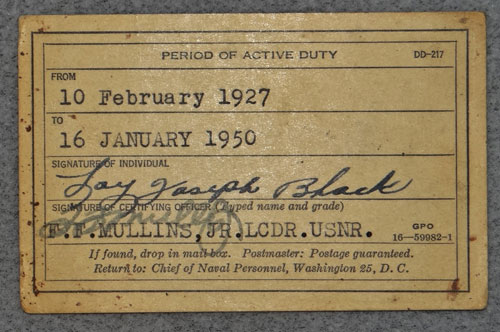 PERIOD OF ACTIVE DUTY DD-217
FROM
10 February 1927
TO
16 JANUARY 1950
SIGNATURE OF INDIVIDUAL
Loy Joseph Black
SIGNATURE OF CERTIFYING OFFICER (Typed name and grade)
F.F.MULLINS,JR.LCDR.USNR.
GPO
16—59982-1
If found, drop in mail box. Postmaster: Postage guaranteed.
Return to: Chief of Naval Personnel, Washington 25, D. C.